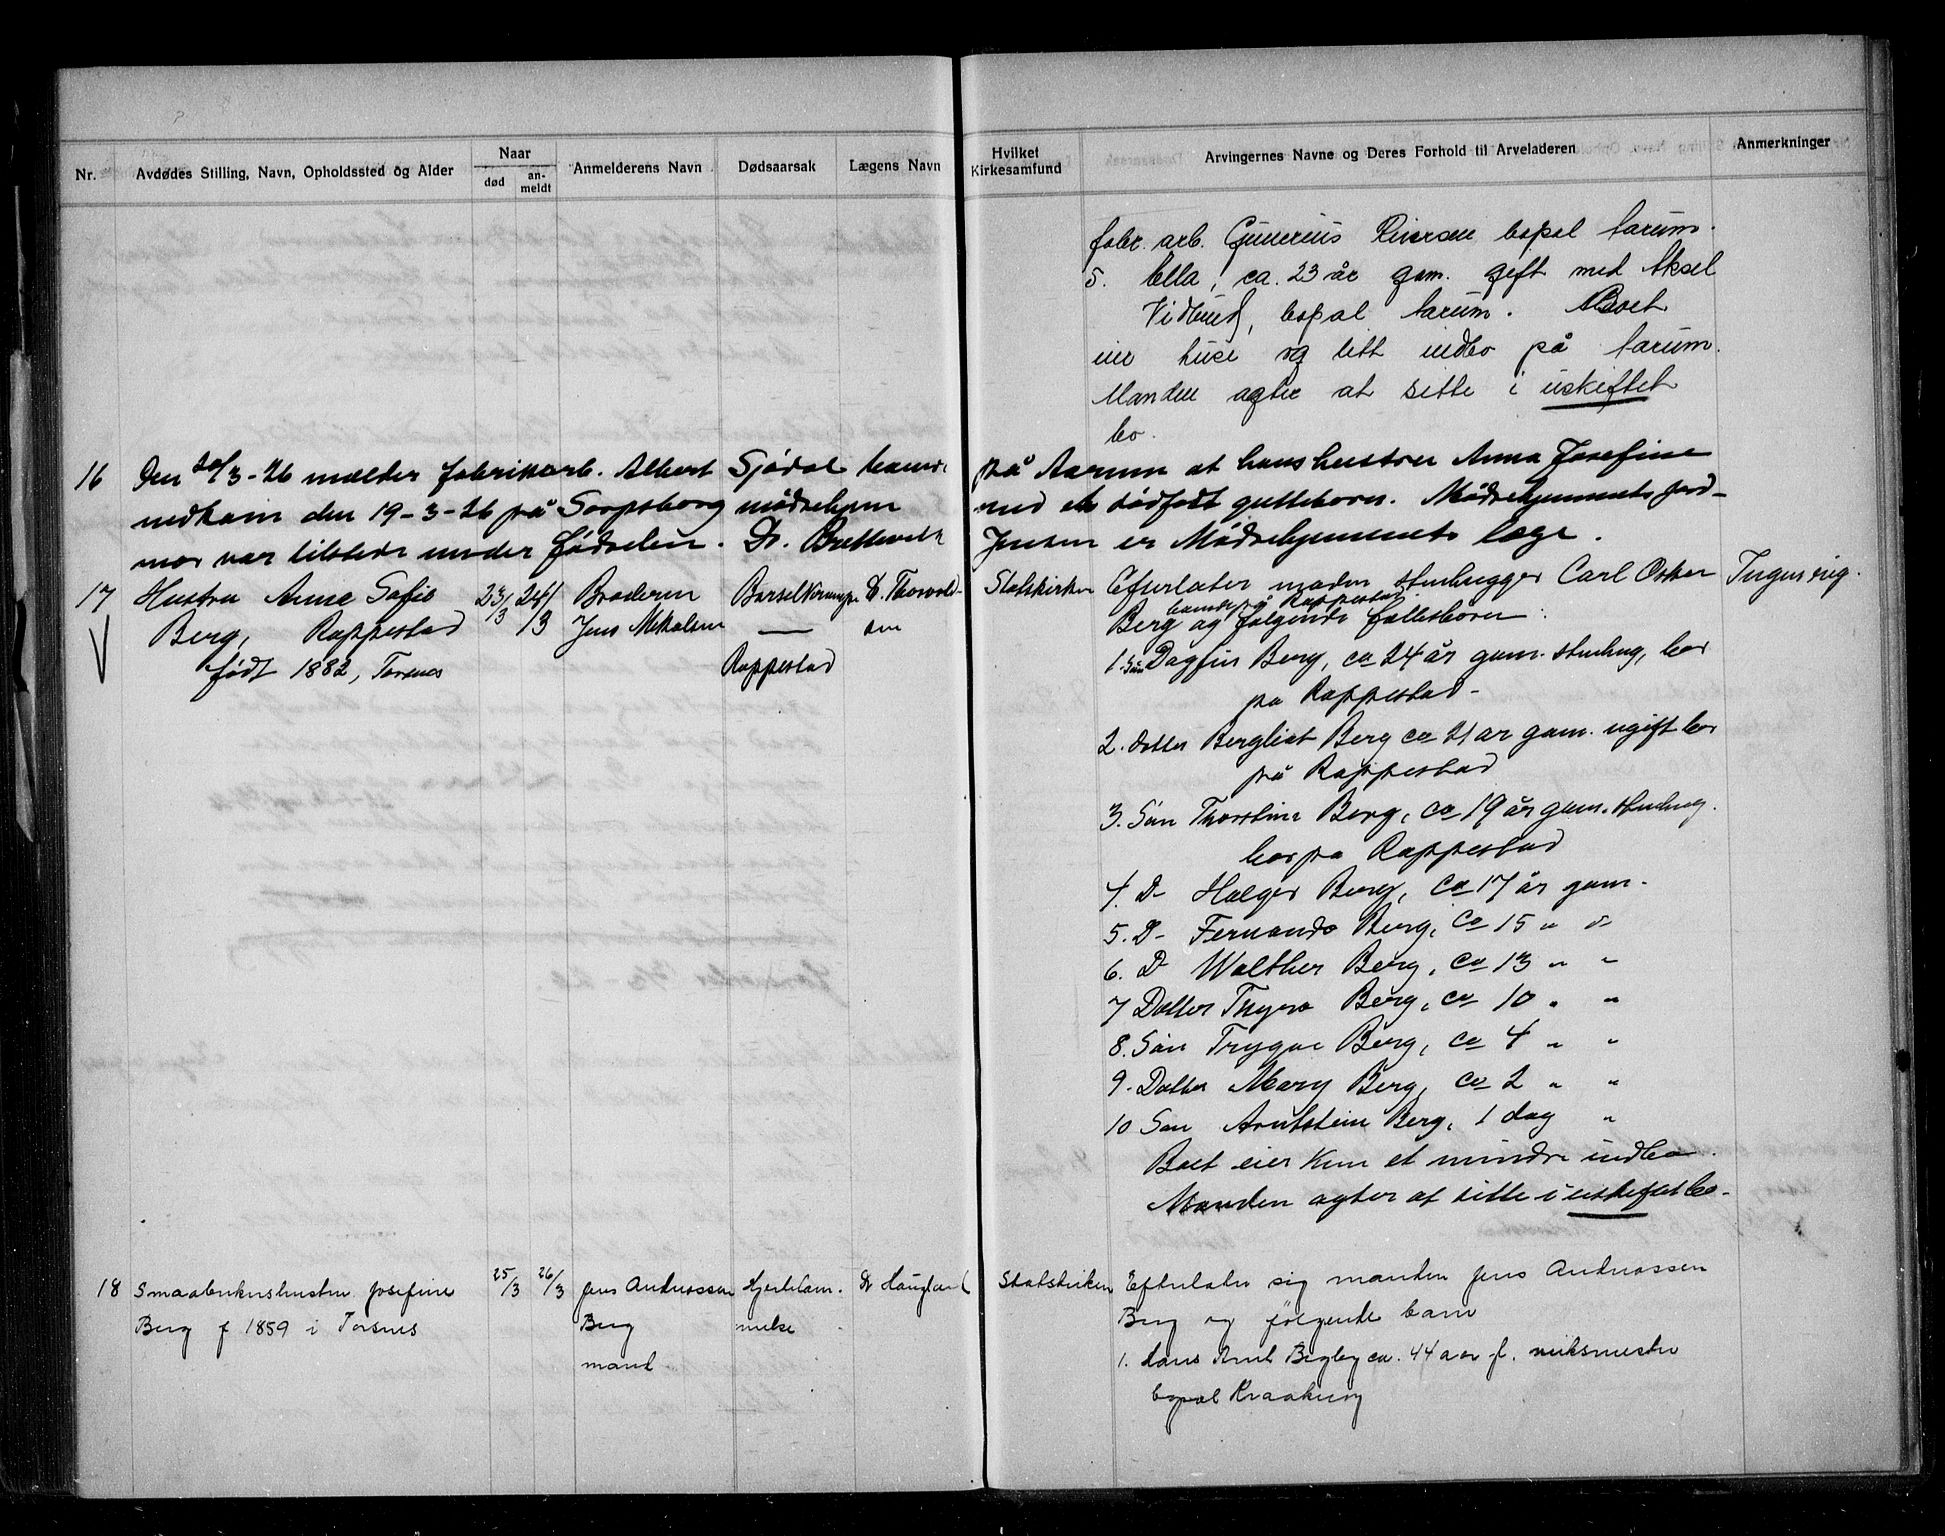 Nr.
Avdødes Stilling, Navn, Opholdssted og Alder
Naar
død
an-
meldt
Anmelderens Navn
Dødsaarsak
Lægens Navn
Hvilket
Kirkesamfund
Arvingernes Navne og Deres Forhold til Arveladeren
Anmerkninger
fabr. arb. Gunerius Iversen bopæl Aarum.
5. Ella, ca. 23 år gam. gift med Aksel
bopæl Aarum. Boet
eier huse og litt indbo på Aarum.
Manden agter at sitte i uskiftet
bo.
16 Den 20/3-26 mælder fabrikkarb. Albert Sjødal på Aarum at hans hustru Anna Josefine
nedkom den 19-3-26 på Sarpsborg mødrehjem med et dødfødt guttebarn. Mødrehjemmets jord-
mor var tilstede under fødselen. Dr. Jensen er Mødrehjemmets læge.
17 Hustru Anne Sofie 23/3 24/3 Broderen Barselkrampe D. Thorvald- Statskirken Efterlater manden stenhugger Carl Oskar Ingen eieg.
Berg, Rappestad Jens Mikalsen — sen Berg boende på Rappestad og følgende fællesbørn:
født 1882, Torsnes Rappestad
1. Søn Dagfin Berg, ca 24 år gam. stenhug, bor
på Rappestad-
2. dotter Bergliot Berg ca 21 år gam. ugift bor
på Rappestad
3. Søn Thorstein Berg, ca 19 år gam. stenhug.
bor på Rappestad
4. D- Holger Berg, ca 17 år gam.
5. D- Fernando Berg, ca 15 " "
6. D Walther Berg, ca 13 " "
7 Dotter Thyra Berg, ca 10 " "
8. Søn Trygve Berg, ca 4 " "
9. Dotter Mary Berg, ca 2 " "
10 Søn Arntstein Berg, 1 dag "
Boet eier kun et mindre indbo.
Manden agter at sitte i uskiftet bo.
18 Smaabrukerhustru Josefine 25/3 26/3 Jens Andreassen Hjertelam- Dr Haugland Statskirken Efterlater sig manden Jens Andreassen
Berg f 1859 i Torsnes Berg melse Berg og følgende barn
mand 1. Hans Arnt Bigby ca. 44 aar f. verksmester
bopæl Kraakerøy